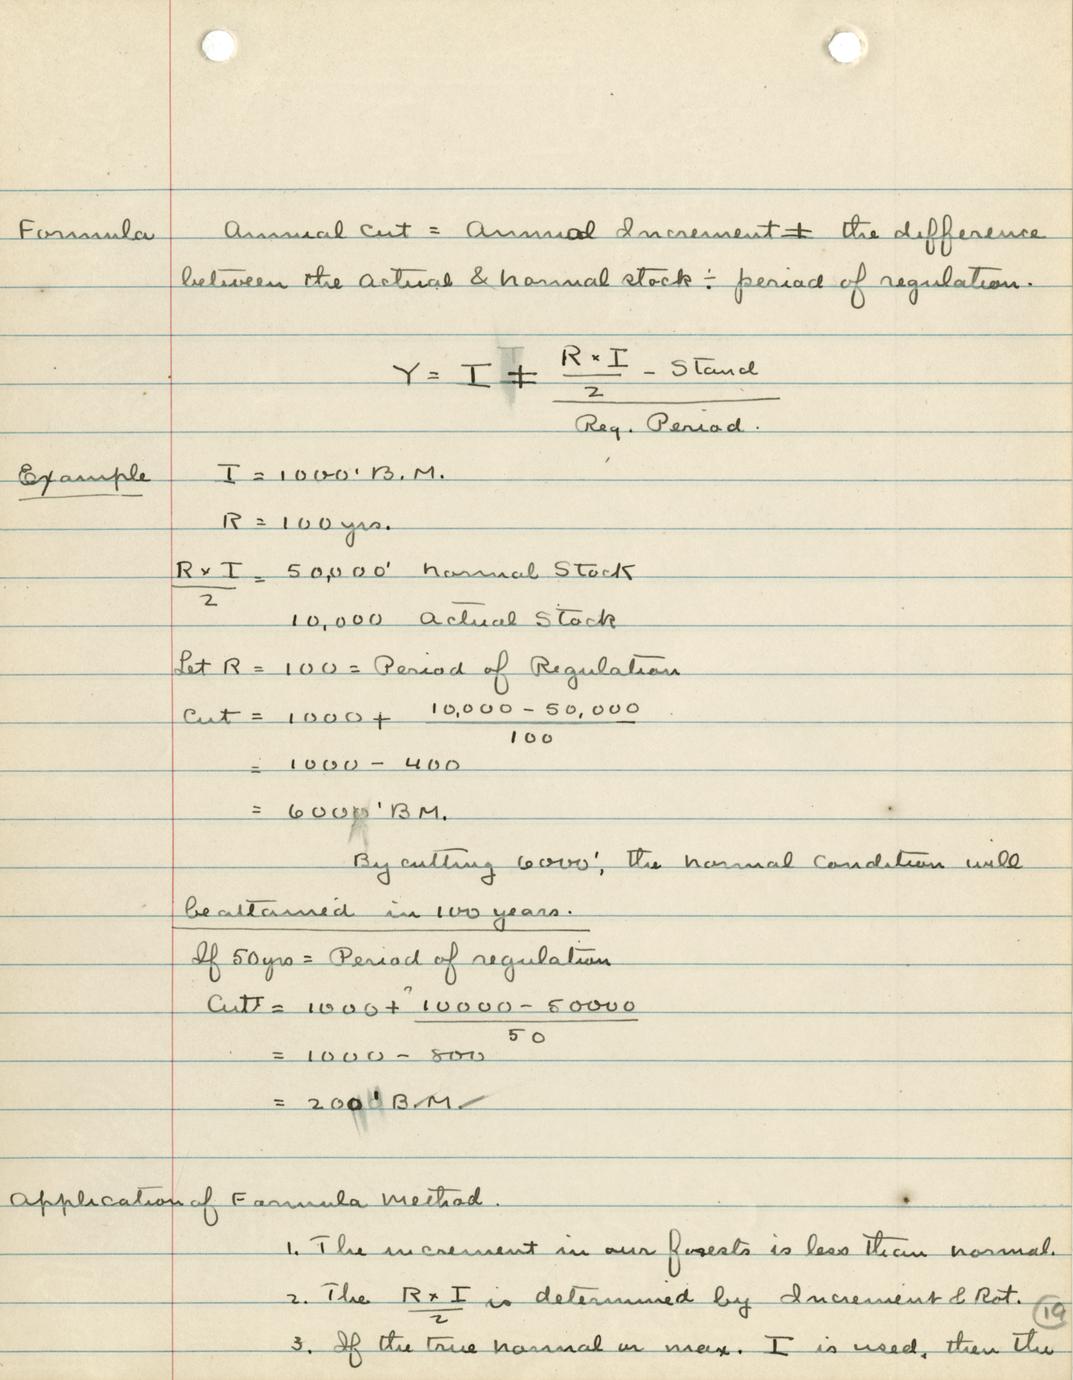 Formula Annual Cut = Annual Increment ± the difference
between the actual & normal stock ÷ period of regulation.
Y = I ± (R × I / 2 - Stand) / Reg. Period.
Example I = 1000' B.M.
R = 100 yrs.
R × I / 2 = 50,000' Normal Stock
10,000 Actual Stock
Let R = 100 = Period of Regulation
Cut = 1000 + (10,000 - 50,000) / 100
= 1000 - 400
= 6000 'BM.
By cutting 6000', the normal condition will
be attained in 100 years.
If 50 yrs = Period of regulation
Cutt = 1000 + (10000 - 50000) / 50
= 1000 - 800
= 200' B.M.
Application of Formula Method.
1. The increment in our forests is less than normal.
2. The R × I / 2 is determined by Increment & Rot.
19
3. If the true normal or max. I is used, then the